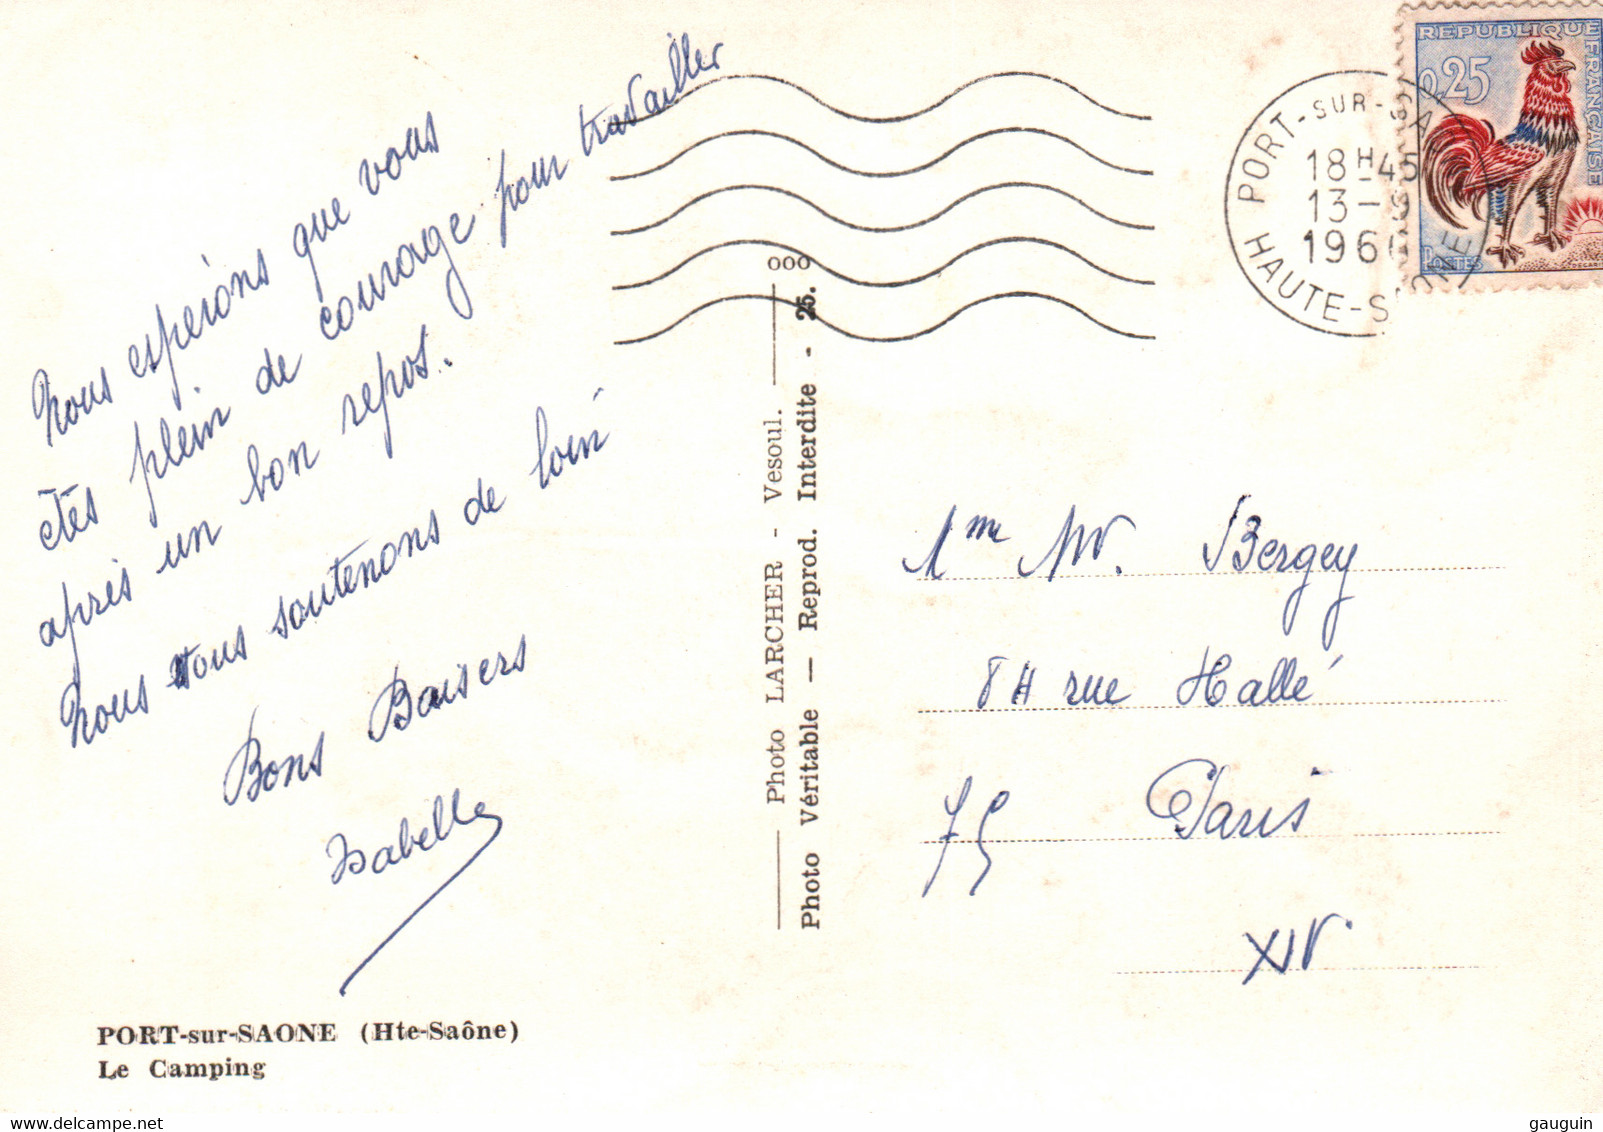 Nous esperions que vous
êtes plein de courage pour travailler
après un bon repos.
Nous vous soutenons de loin
Bons Baisers
Isabelle
PORT-sur-SAONE (Hte-Saône)
Le Camping
Photo LARCHER - Vesoul.
Photo Véritable — Reprod. Interdite - 25.
ooo
PORT-SUR-SA
18H45
13-9
196
HAUTE-SAONE
REPUBLIQUE FRANÇAISE
0,25
POSTES
Mr. Bergey
rue Hallé
75 Paris
XIV
gauguin